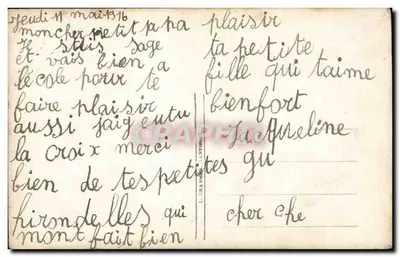 Jeudi 11 mai 1916
mon cher petit papa
Je suis sage
et vais bien a
lécole pour te
faire plaisir
aussi jaig eu tu
la croix merci
bien de tes petites gu
hirondelles qui
mont fait bien
plaisir
ta petite
fille qui taime
bien fort
Jacqueline
cher che